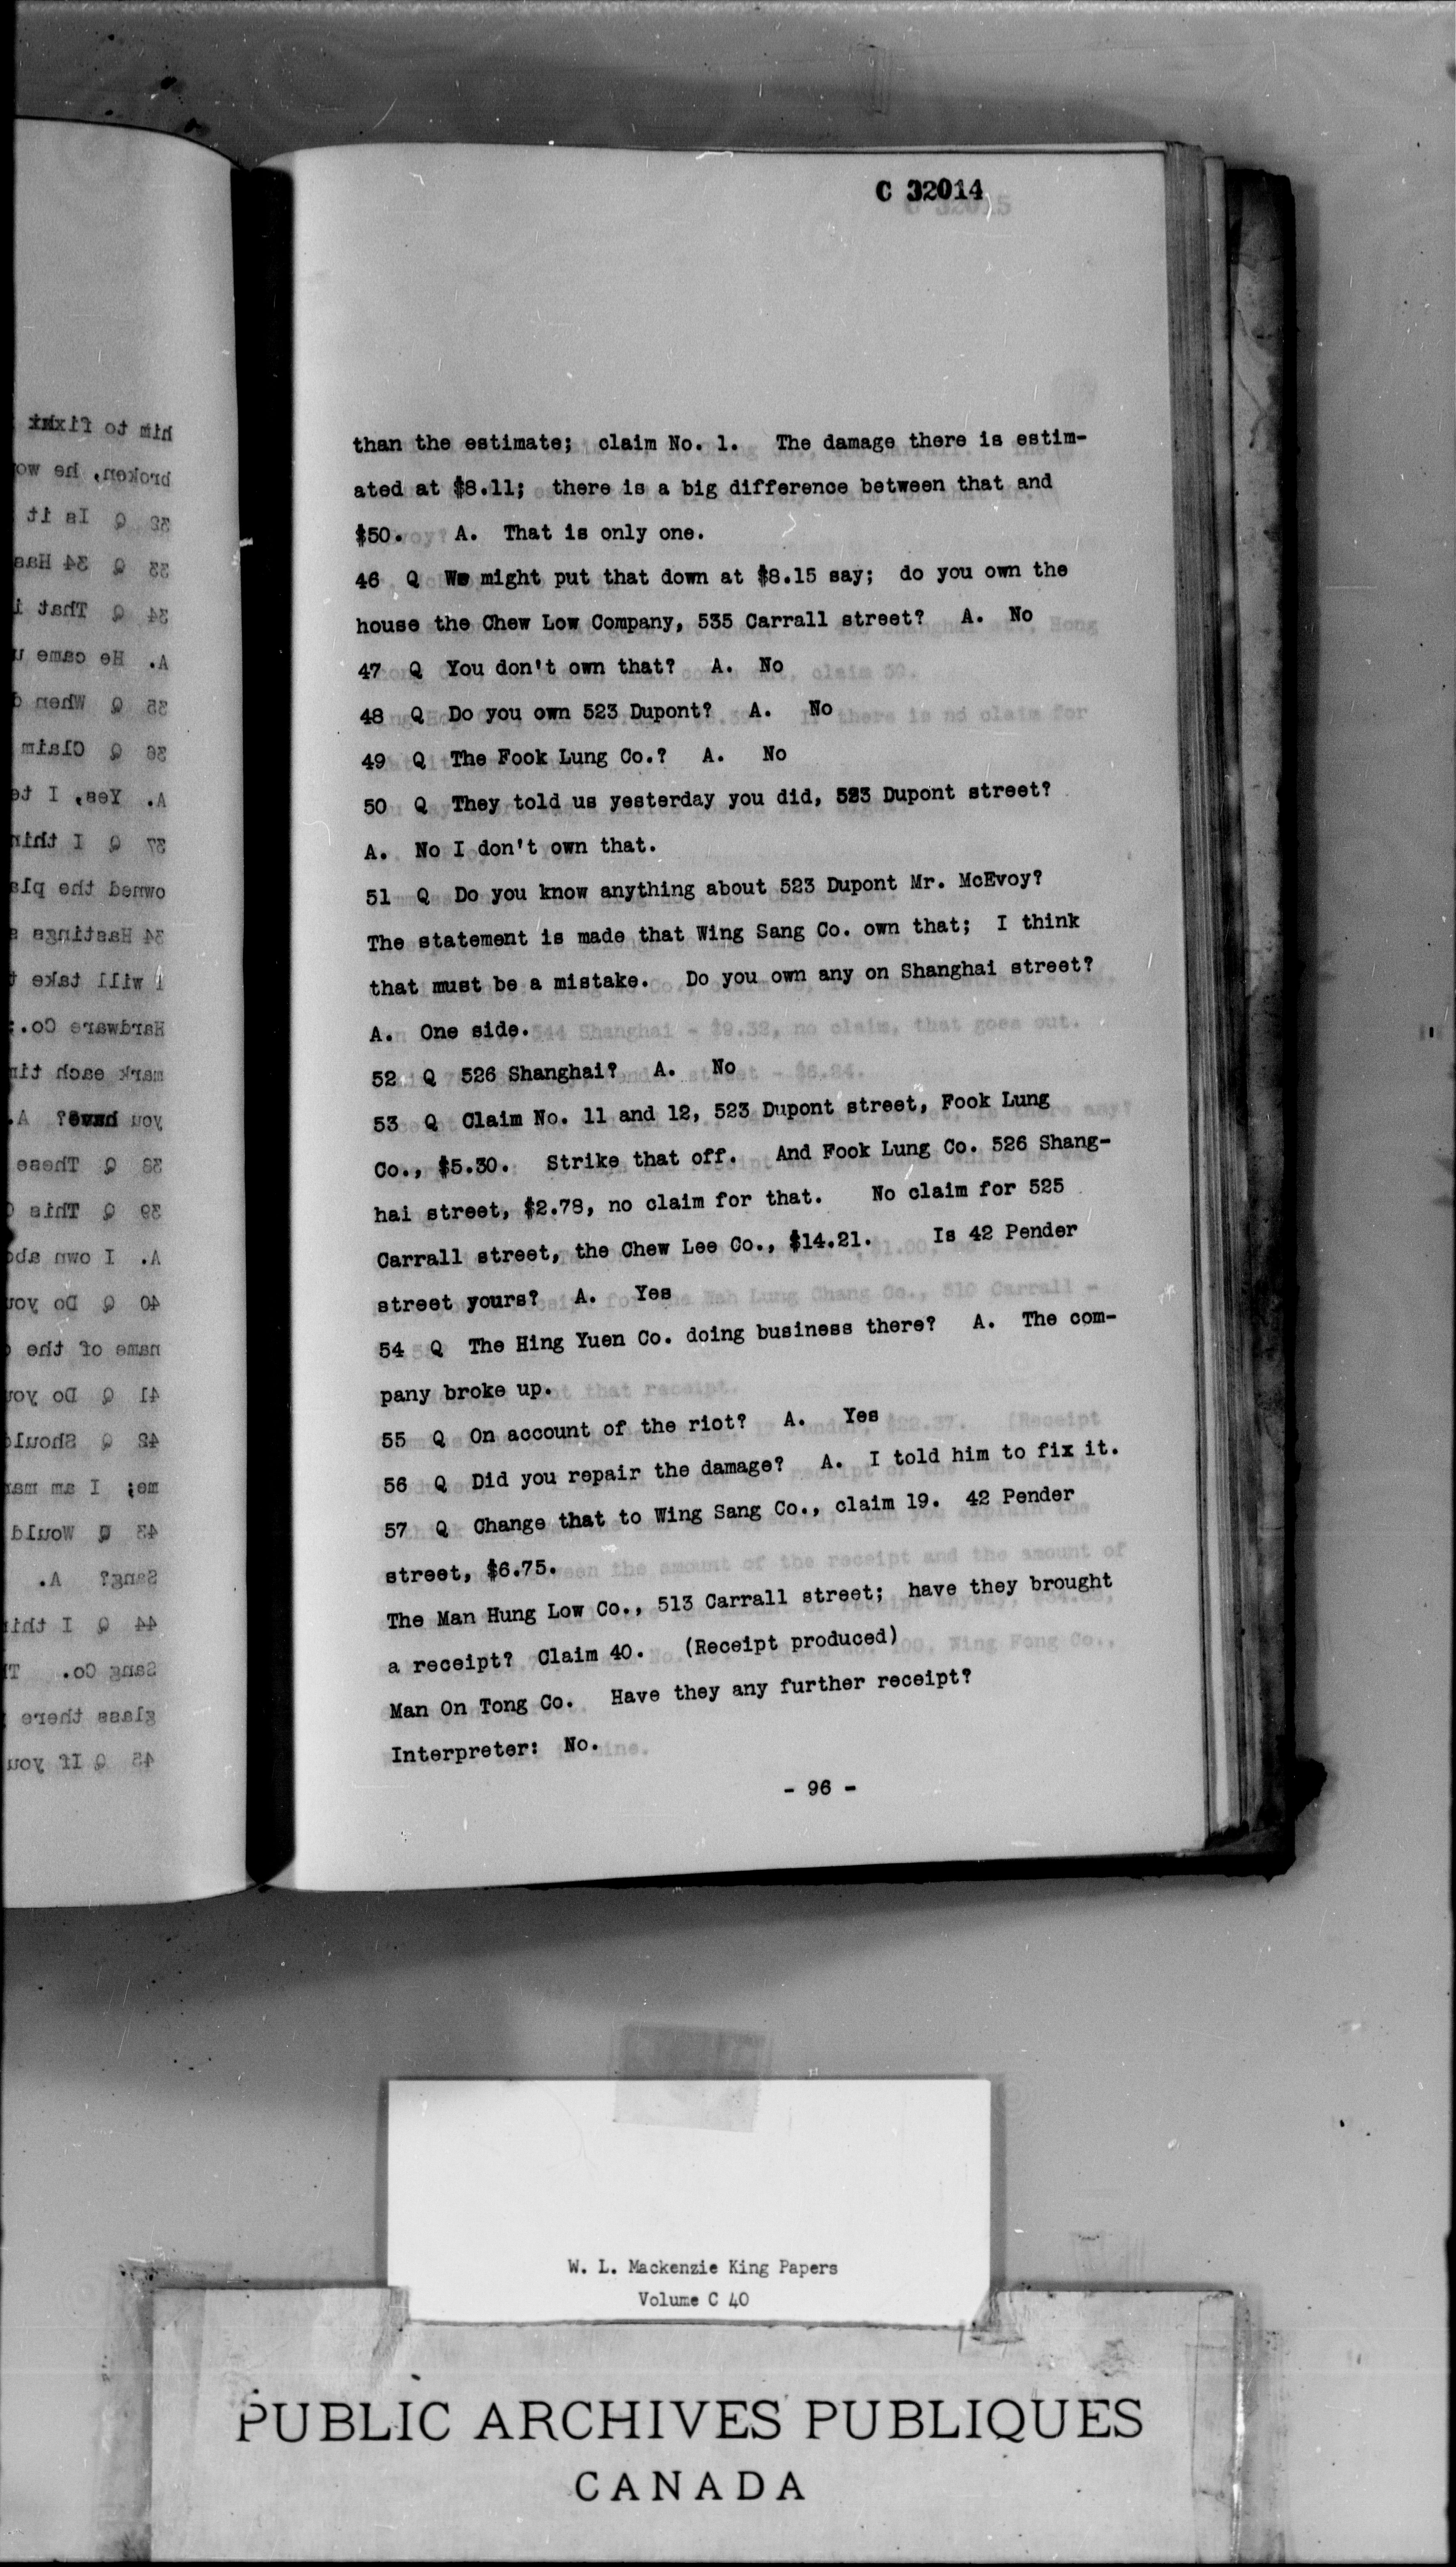 C 32014
than the estimate; claim No. 1. The damage there is estim-
ated at $8.11; there is a big difference between that and
$50. A. That is only one.
46 Q We might put that down at $8.15 say; do you own the
house the Chew Low Company, 535 Carrall street? A. No
47 Q You don't own that? A. No
48 Q Do you own 523 Dupont? A. No
49 Q The Fook Lung Co.? A. No
50 Q They told us yesterday you did, 523 Dupont street?
A. No I don't own that.
51 Q Do you know anything about 523 Dupont Mr. McEvoy?
The statement is made that Wing Sang Co. own that; I think
that must be a mistake. Do you own any on Shanghai street?
A. One side.
52 Q 526 Shanghai? A. No
53 Q Claim No. 11 and 12, 523 Dupont street, Fook Lung
Co., $5.30. Strike that off. And Fook Lung Co. 526 Shang-
hai street, $2.78, no claim for that. No claim for 525
Carrall street, the Chew Lee Co., $14.21. Is 42 Pender
street yours? A. Yes
54 Q The Hing Yuen Co. doing business there? A. The com-
pany broke up.
55 Q On account of the riot? A. Yes
56 Q Did you repair the damage? A. I told him to fix it.
57 Q Change that to Wing Sang Co., claim 19. 42 Pender
street, $6.75.
The Man Hung Low Co., 513 Carrall street; have they brought
a receipt? Claim 40. (Receipt produced)
Man On Tong Co. Have they any further receipt?
Interpreter: No.
- 96 -
W. L. Mackenzie King Papers
Volume C 40
PUBLIC ARCHIVES PUBLIQUES
CANADA